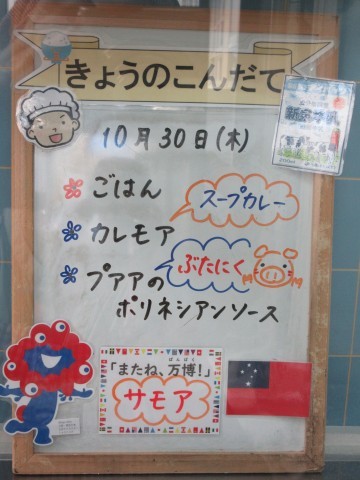 きょうのこんだて
10月30日(木)
ごはん
スープカレー
カレモア
ぶたにく
プアアの
ポリネシアンソース
「またね、万博!」
ばんぱく
サモア